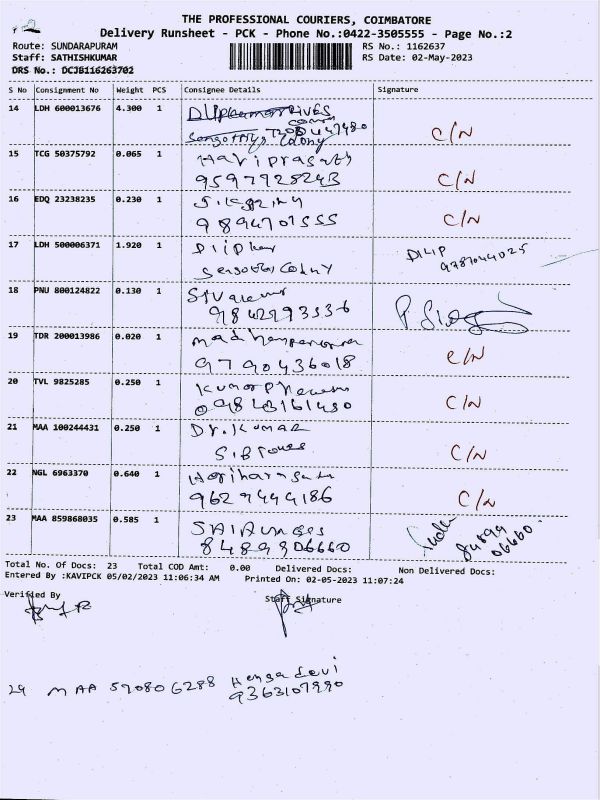 THE PROFESSIONAL COURIERS, COIMBATORE
Delivery Runsheet - PCK - Phone No.:0422-3505555 - Page No.:2
Route: SUNDARAPURAM RS No.: 1162637
Staff: SATHISHKUMAR RS Date: 02-May-2023
DRS No.: DCJB116263702
S No Consignment No Weight PCS Consignee Details Signature
14 LDH 600013676 4.300 1
Colony C/N
15 TCG 50375792 0.065 1 Hariprasath
9597928243 C/N
16 EDQ 23238235 0.230 1
9894701555 C/N
17 LDH 500006371 1.920 1 DILIP
Colony 9787044025
18 PNU 800124822 0.130 1
9842293336
19 TDR 200013986 0.020 1
9790436018 C/N
20 TVL 9825285 0.250 1 Kumar
C/N
21 MAA 100244431 0.250 1 Dr.Kumar
C/N
22 NGL 6963370 0.640 1
9629444186 C/N
23 MAA 859868035 0.585 1
8489906660 84899 06660.
Total No. Of Docs: 23 Total COD Amt: 0.00 Delivered Docs: Non Delivered Docs:
Entered By :KAVIPCK 05/02/2023 11:06:34 AM Printed On: 02-05-2023 11:07:24
Verified By Staff Signature
24 MAA 590806288 Hensa Devi
9363107990